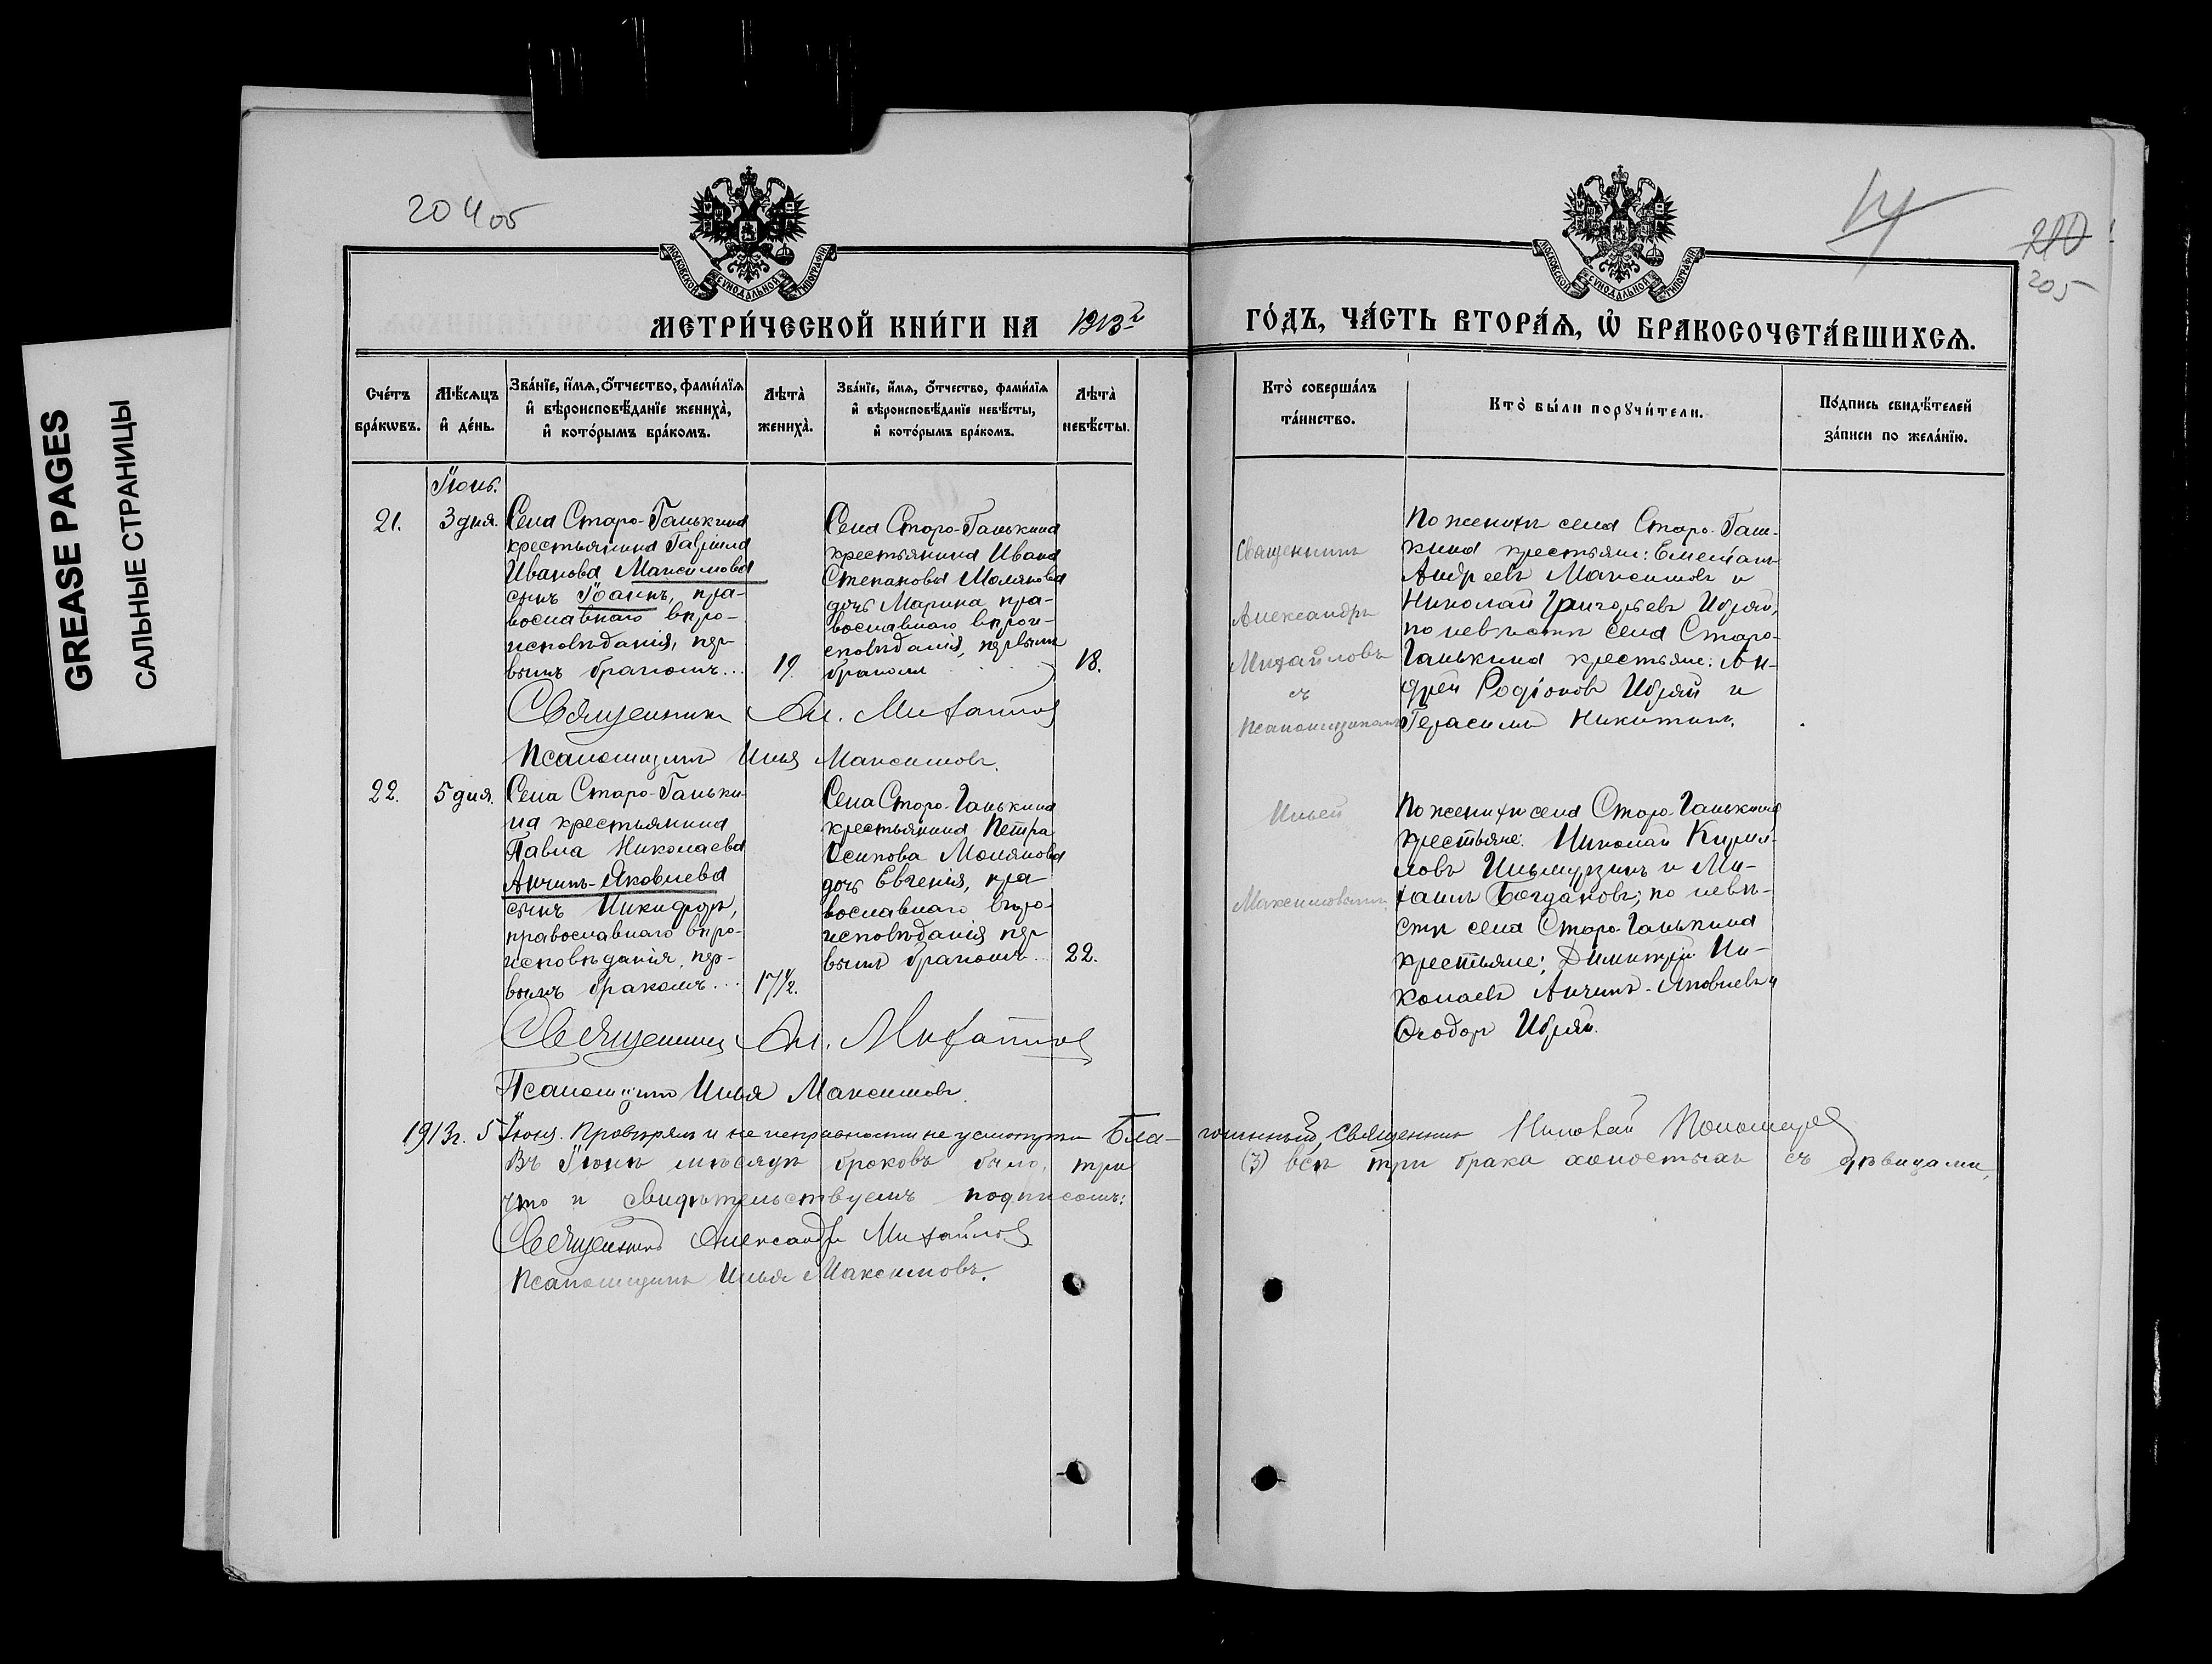 GREASE PAGES
САЛЬНЫЕ СТРАНИЦЫ
204 об
210
205
МОСКОВСКОЙ СѴНОДАЛЬНОЙ ТИПОГРАФІИ
МОСКОВСКОЙ СѴНОДАЛЬНОЙ ТИПОГРАФІИ
МЕТРИ́ЧЕСКОЙ КНИ́ГИ НА 1913 г
ГО́ДЪ, ЧА́СТЬ ВТОРА́Ѧ, Ѡ҆ БРАКОСОЧЕТА́ВШИХСѦ.
Сче́тъ
бра́кѡвъ.
Мѣ́сѧцъ
и҆ де́нь.
Зва́нїе, и҆́мѧ, ѻ҆́тчество, фами́лїѧ
и҆ вѣроисповѣ́данїе жениха̀,
и҆ кото́рымъ бра́комъ.
Лѣта̀
жениха̀.
Зва́нїе, и҆́мѧ, ѻ҆́тчество, фами́лїѧ
и҆ вѣроисповѣ́данїе невѣ́сты,
и҆ кото́рымъ бра́комъ.
Лѣта̀
невѣ́сты.
Кто̀ соверша́лъ
та́инство.
Кто̀ бы́ли порꙋчи́тели.
По́дпись свидѣ́телей
за́писи по жела́нїю.
Іюнь.
21.
3 дня.
Села Старо-Ганькина
крестьянина Гавріила
Иванова Максимова
сынъ Іоаннъ, пра-
вославнаго вѣро-
исповѣданія, пер
вымъ бракомъ...
19.
Села Старо-Ганькина
крестьянина Ивана
Степанова Молянова
дочь Марина, пра-
вославнаго вѣрои-
сповѣданія, первымъ
бракомъ
18.
Священникъ
Александръ
Михайловъ
съ
Псаломщикомъ
По женихѣ села Старо-Гань-
кина крестьяне: Емеліанъ
Андреевъ Максимовъ и
Николай Григорьевъ Ибряй,
по невѣстѣ села Старо-
Ганькина крестьяне: Ан-
дрей Родіоновъ Ибряй и
Герасимъ Никитинъ.
Священникъ Ал. Михайловъ
Псаломщикъ Илья Максимовъ.
22.
5 дня.
Села Старо-Ганьки-
на крестьянина
Павла Николаева
Анчинъ-Яковлева
сынъ Никифоръ,
православнаго вѣро-
исповѣданія, пер-
вымъ бракомъ...
17½.
Села Старо-Ганькина
крестьянина Петра
Осипова Молянова
дочь Евгенія, пра
вославнаго вѣро-
исповѣданія пер
вымъ бракомъ...
22.
Ильей
Максимовымъ.
По женихѣ села Старо-Ганькина
крестьяне: Николай Кирил-
ловъ Ильмурзинъ и Ми-
хаилъ Богдановъ; по невѣ-
стѣ села Старо-Ганькина
крестьяне: Димитрій Ни-
колаевъ Анчинъ-Яковлевъ и
Ѳеодоръ Ибряй.
Священникъ Ал. Михайловъ
Псаломщикъ Илья Максимовъ.
1913 г. 5 Іюня. Провѣрялъ и не исправности не усмотрѣлъ Бла-гочинный, Священникъ Николай Пономарев
Въ Іюнѣ мѣсяцѣ браковъ было, три (3) всѣ три брака холостыхъ съ дѣвицами,
что и свидѣтельствуемъ подписомъ:
Священникъ Александръ Михайловъ
Псаломщикъ Илья Максимовъ.